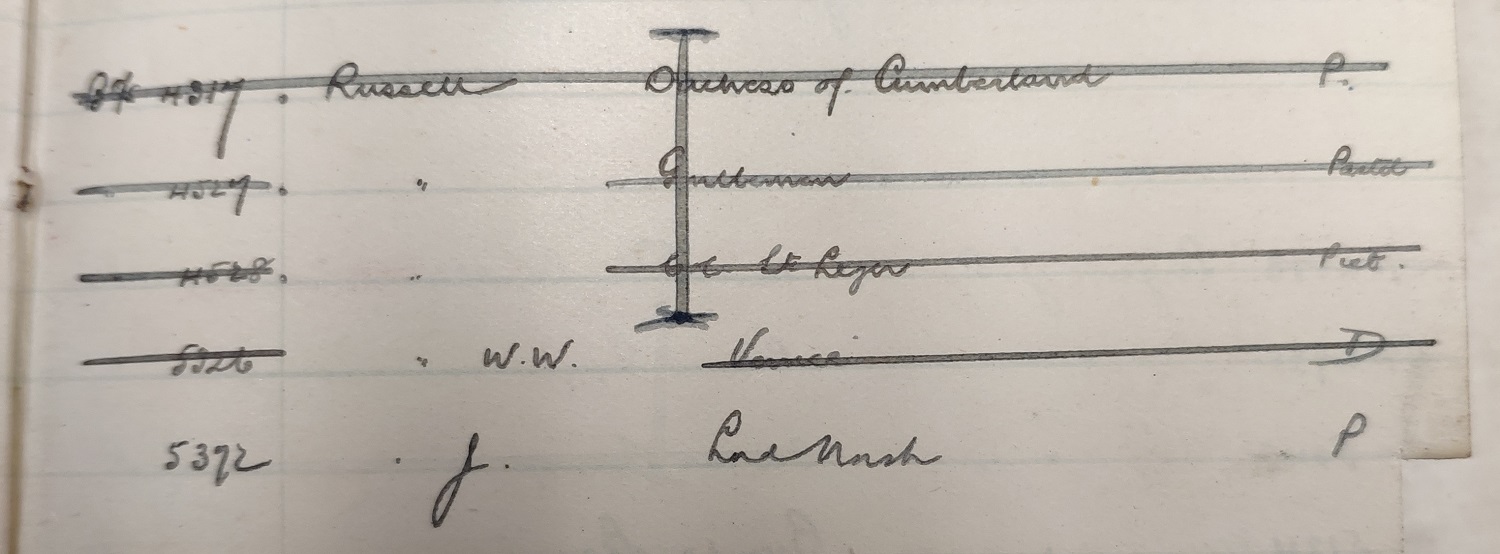 4317. Russell Duchess of Cumberland P.
4527. " Gentleman Pastel
4528. " Col. St Leger Past.
5326 " W.W. Venice D
5392 . J. Lad Nash P